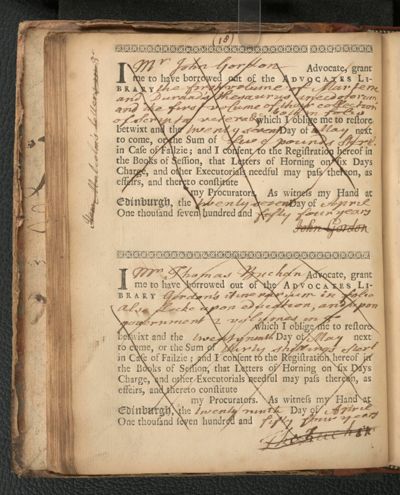 (18)
I Mr John Gordon Advocate, grant
me to have borrowed out of the ADVOCATES LI-
BRARY the first volume of Martene
and Durand's thesaurus anecdotorum
and the first volume of their collection
of in folio
which I oblige me to restore
betwixt and the twenty seven Day of May next
to come, or the Sum of five pounds Ster.
in Case of Failzie; and I consent to the Registration hereof in
the Books of Session, that Letters of Horning on six Days
Charge, and other Executorials needful may pass thereon, as
effeirs, and thereto constitute
my Procurators. As witness my Hand at
Edinburgh, the twenty seven Day of April
One thousand seven hundred and fifty four years
John Gordon
I Mr. Thomas Buchan Advocate, grant
me to have borrowed out of the ADVOCATES LI-
BRARY Gordon's itinerarium in folio
also Locke upon education, and upon
government 2 volumes in 8o
which I oblige me to restore
betwixt and the twenty ninth Day of May next
to come, or the Sum of thirty Ster
in Case of Failzie; and I consent to the Registration hereof in
the Books of Session, that Letters of Horning on six Days
Charge, and other Executorials needful may pass thereon, as
effeirs, and thereto constitute
my Procurators. As witness my Hand at
Edinburgh, the twenty ninth Day of April
One thousand seven hundred and fifty four years
Tho Buchan